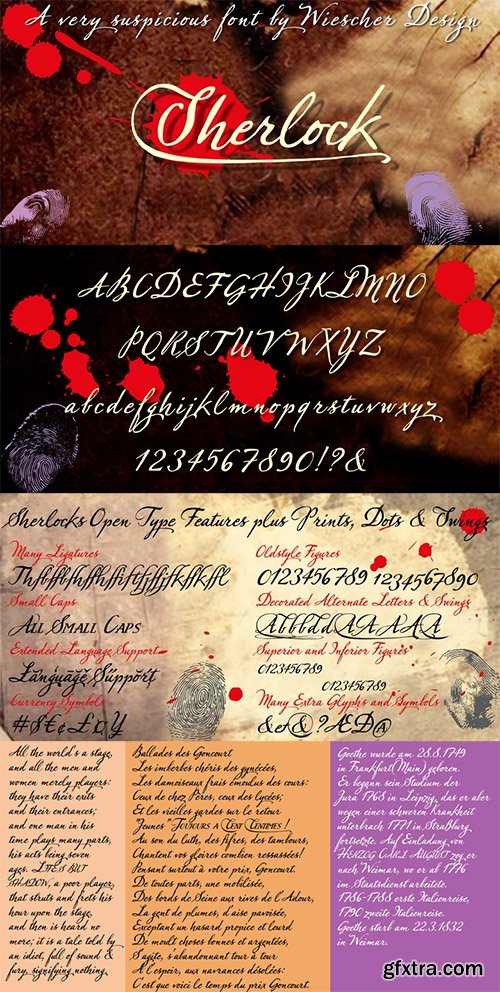 A very suspicious font by Wiescher Design
Sherlock
ABCDEFGHIJKLMNO
PQRSTUVWXYZ
abcdefghijklmnopqrstuvwxyz
1234567890!?&
Sherlocks Open Type Features plus Prints, Dots & Swings
Many Ligatures
Small Caps
All Small Caps
Extended Language Support
Currency Symbols
Oldstyle Figures
0123456789 1234567890
Decorated Alternate Letters & Swings
Superior and Inferior Figures
0123456789
0123456789
Many Extra Glyphs and Symbols
All the world's a stage,
and all the men and
women merely players:
they have their exits
and their entrances;
and one man in his
time plays many parts,
his acts being seven
ages. LIFE'S BUT
SHADOW, a poor player,
that struts and frets his
hour upon the stage,
and then is heard no
more; it is a tale told by
an idiot, full of sound &
fury, signifying nothing.
Ballades des Goncourt
Les imberbes chéris des gynécées,
Les damoiseaux frais émoulus des cours:
Ceux de chez Pères, ceux des Lycées;
Et les vieilles gardes sur le retour
Jeunes TOUJOURS A CENT CENTIMES!
Au son du luth, des fifres, des tambours,
Chantent vos gloires combien ressassées!
Pensant surtout à votre prix, Goncourt.
De toutes parts, une mobilisée,
Des bords de Seine aux rives de l'Adour,
La gent de plumes, d'aise pavoisée,
Exceptant un hasard propice et lourd
De moult choses bonnes et argentées,
S'agite, s'abandonnant tour à tour
A l'espoir, aux navrances désolées:
C'est que voici le temps du prix Goncourt.
Goethe wurde am 28.8.1749
in Frankfurt(Main) geboren.
Er begann sein Studium der
Jura 1768 in Leipzig, das er aber
wegen einer schweren Krankheit
unterbrach. 1771 in Straßburg,
fortsetzte. Auf Einladung von
HERZOG CARL AUGUST zog er
nach Weimar, wo er ab 1776
im Staatsdienst arbeitete.
1786-1788 erste Italienreise,
1790 zweite Italienreise.
Goethe starb am 22.3.1832
in Weimar.
gfxtra.com